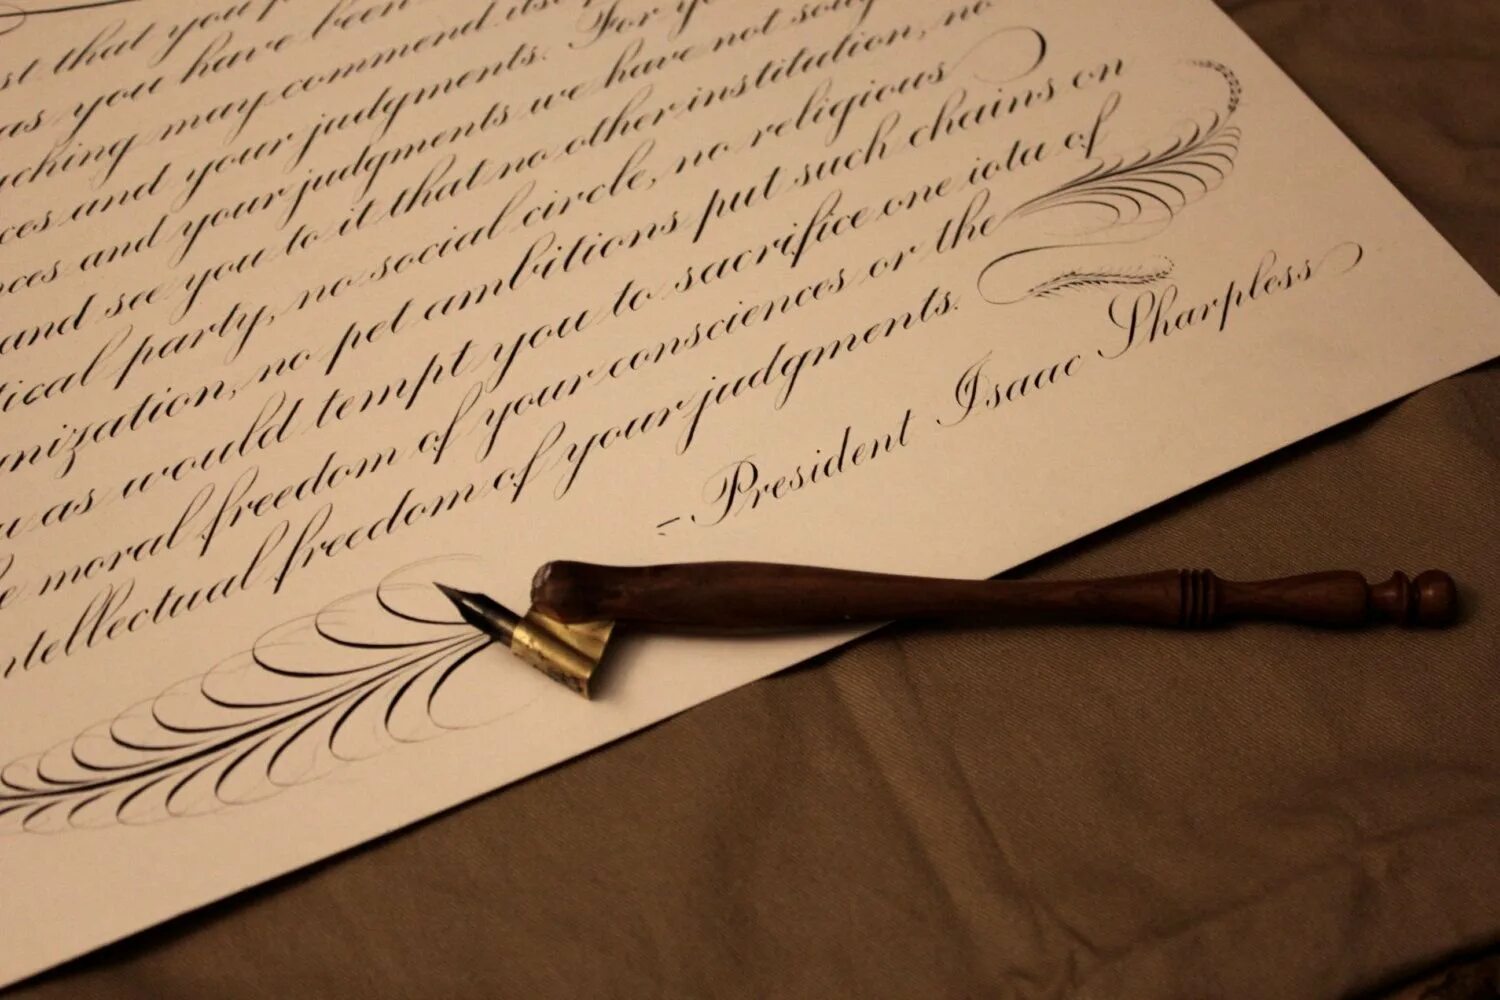 st that you
as you have been
ching may commend its
ces and your judgments. For yo
nces and your judgments we have not soug
and see you to it that no other institution, no
tical party, no social circle, no religious
nization, no pet ambitions put such chains on
u as would tempt you to sacrifice one iota of
e moral freedom of your consciences or the
ntellectual freedom of your judgments.
-President Isaac Sharpless